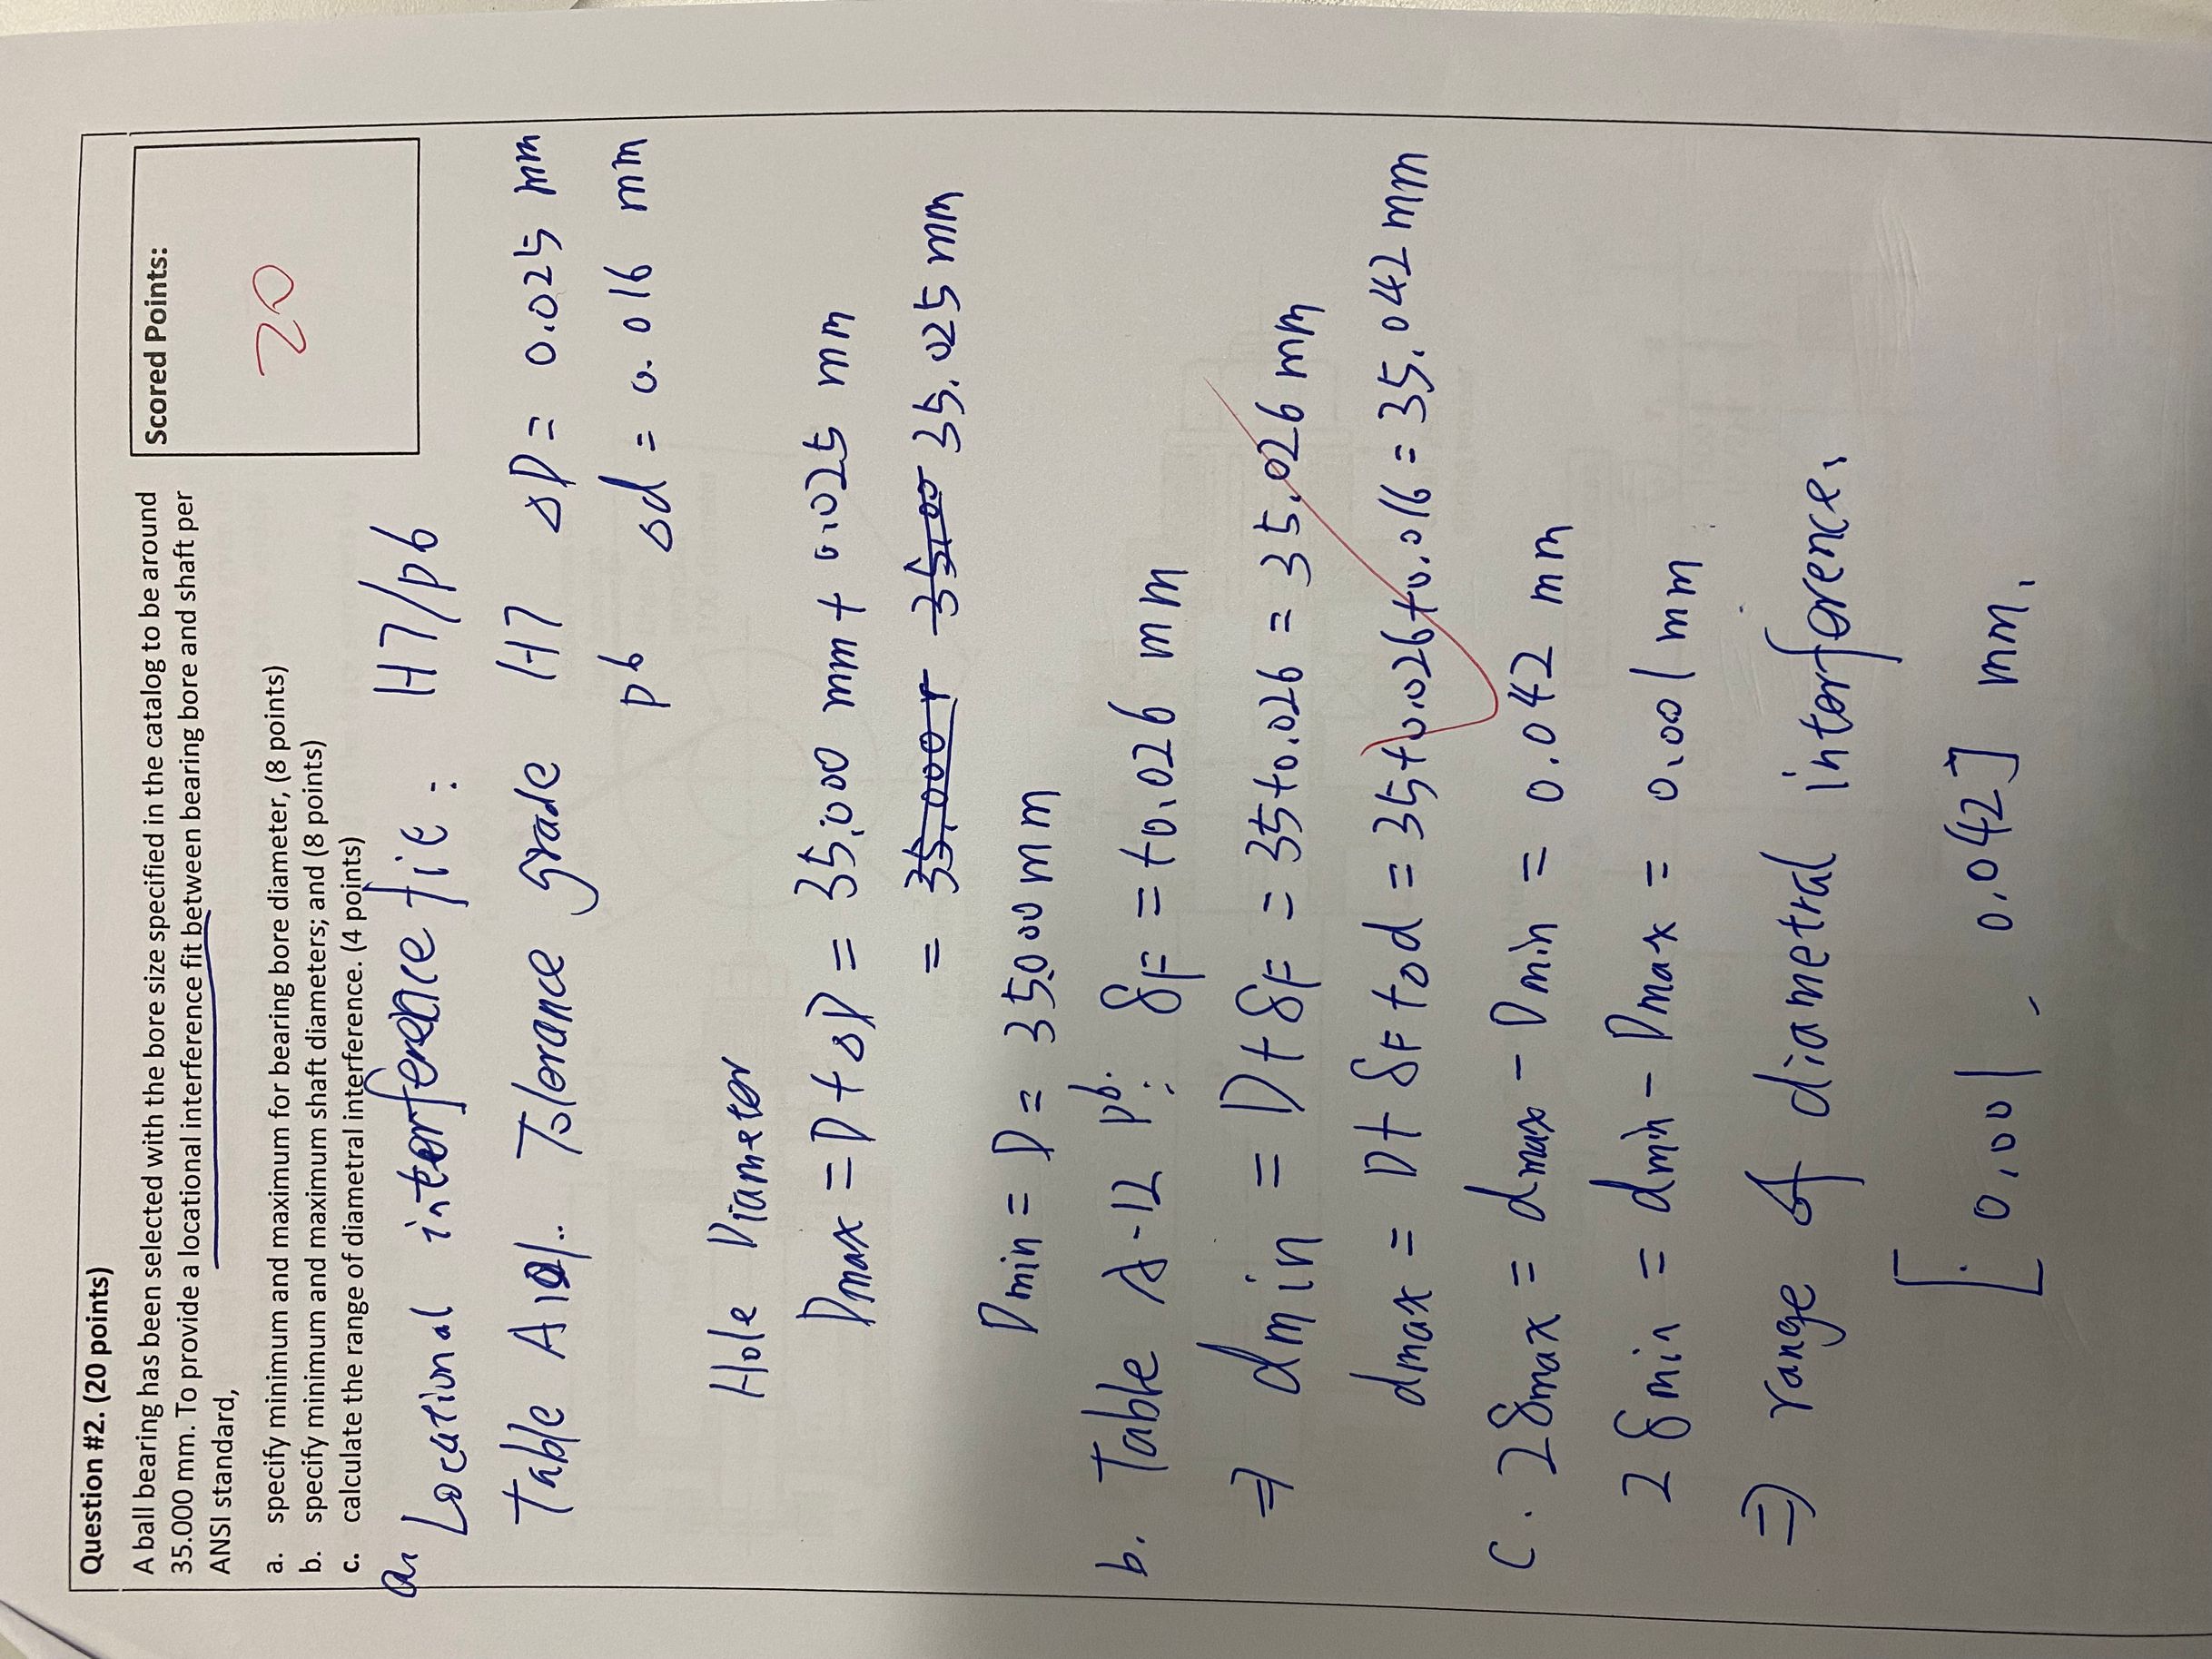 Question #2. (20 points)
A ball bearing has been selected with the bore size specified in the catalog to be around
35.000 mm. To provide a locational interference fit between bearing bore and shaft per
ANSI standard,
a. specify minimum and maximum for bearing bore diameter, (8 points)
b. specify minimum and maximum shaft diameters; and (8 points)
c. calculate the range of diametral interference. (4 points)
Scored Points:
20
a. Locational interference fit: H7/p6
Table A Tolerance grade H7 ΔD = 0.025 mm
p6 Δd = 0.016 mm
Hole Diameter
Dmax = D + ΔD = 35.000 mm + 0.025 mm
= 35.025 mm
Dmin = D = 35.000 mm
b. Table A-12 p6: δF = +0.026 mm
⇒ dmin = D + δF = 35+0.026 = 35.026 mm
dmax = D + δF + Δd = 35+0.026+0.016 = 35.042 mm
c. 2δmax = dmax - Dmin = 0.042 mm
2δmin = dmin - Dmax = 0.001 mm
⇒ range of diametral interference.
[0.001, 0.042] mm.